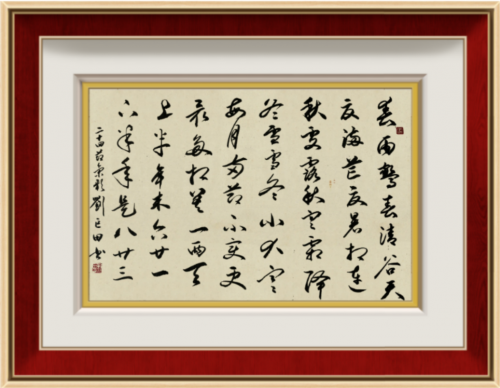 春雨驚春清谷天
夏滿芒夏暑相連
秋處露秋寒霜降
冬雪雪冬小大寒
每月兩節不變更
最多相差一兩天
上半年來六廿一
下半年是八廿三
二十四節氣歌 劉田書